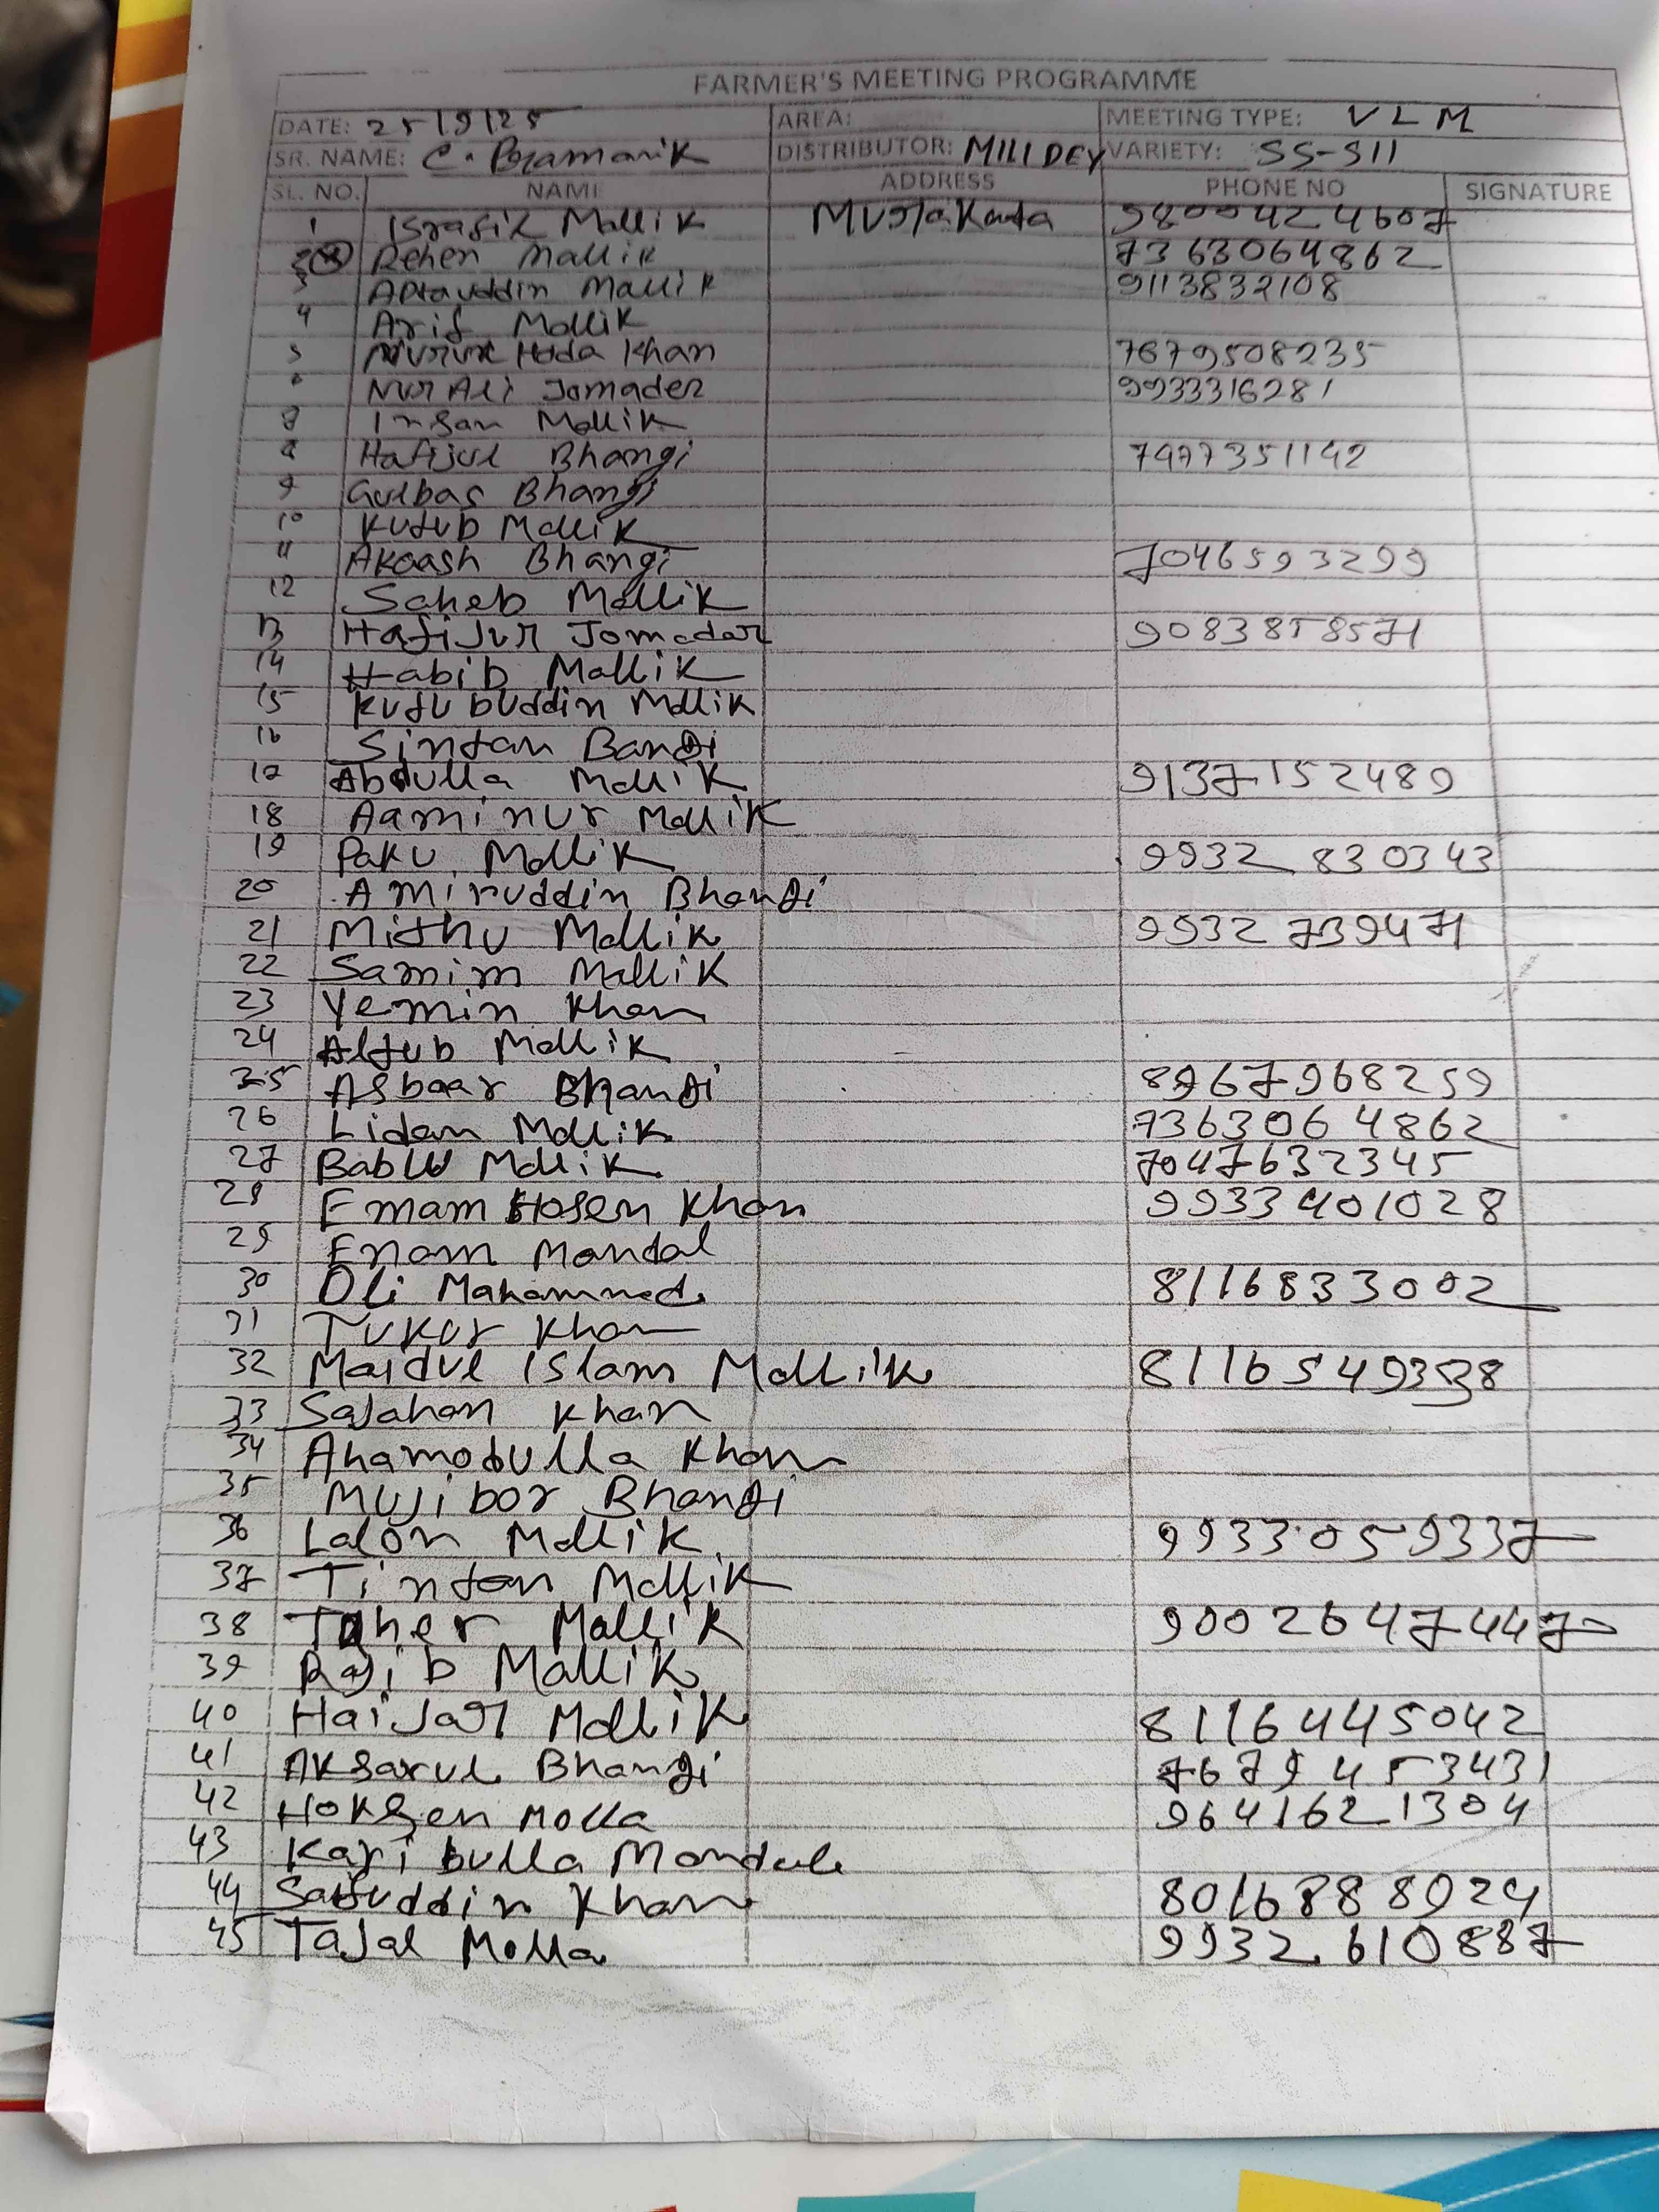 FARMER'S MEETING PROGRAMME
DATE: 25/9/25 AREA: MEETING TYPE: VLM
SR. NAME: C. Pramanik DISTRIBUTOR: MILI DEY VARIETY: SS-511
SL. NO. NAME ADDRESS PHONE NO SIGNATURE
1 Israfil Mallik 9800424607
2 Rehen Mallik 7363064862
3 Mallik 9113832108
4 Arif Mallik
5 Nurul Hoda Khan 7679508235
6 Nur Ali Jomader 9933316281
7 Insan Mallik
8 Hafijul Bhangi 7477351142
9 Gulbas Bhangi
10 Kutub Mallik
11 Akaash Bhangi 7046593299
12 Saheb Mallik
13 Hafijur Jomadar 9083858571
14 Habib Mallik
15 Kutubuddin Mallik
16 Sintan Bangi
17 Abdulla Mallik 9137152489
18 Aaminur Mallik
19 Paku Mallik 9932 830343
20 Amiruddin Bhangi
21 Mithu Mallik 9932739471
22 Samim Mallik
23 Yemin Khan
24 Altub Mallik
25 Asbaar Bhangi 8967968259
26 Lidan Mallik 7363064862
27 Bablu Mallik 7047632345
28 Emam Hosen Khan 9933401028
29 Enam Mandal
30 Oli Mahammed 8116833002
31 Tukur Khan
32 Maidul Islam Mallik 8116549338
33 Sajahan Khan
34 Ahamodulla Khan
35 Mujibor Bhangi
36 Lalon Mallik 9933059337
37 Tintan Mallik
38 Taher Mallik 9002647447
39 Rajib Mallik
40 Haijar Mallik 8116445042
41 Aksarul Bhangi 7679453431
42 Hoksen Molla 9641621304
43 Kajibulla Mondal
44 Saifuddin Khan 8016888924
45 Tajal Molla 9932610887